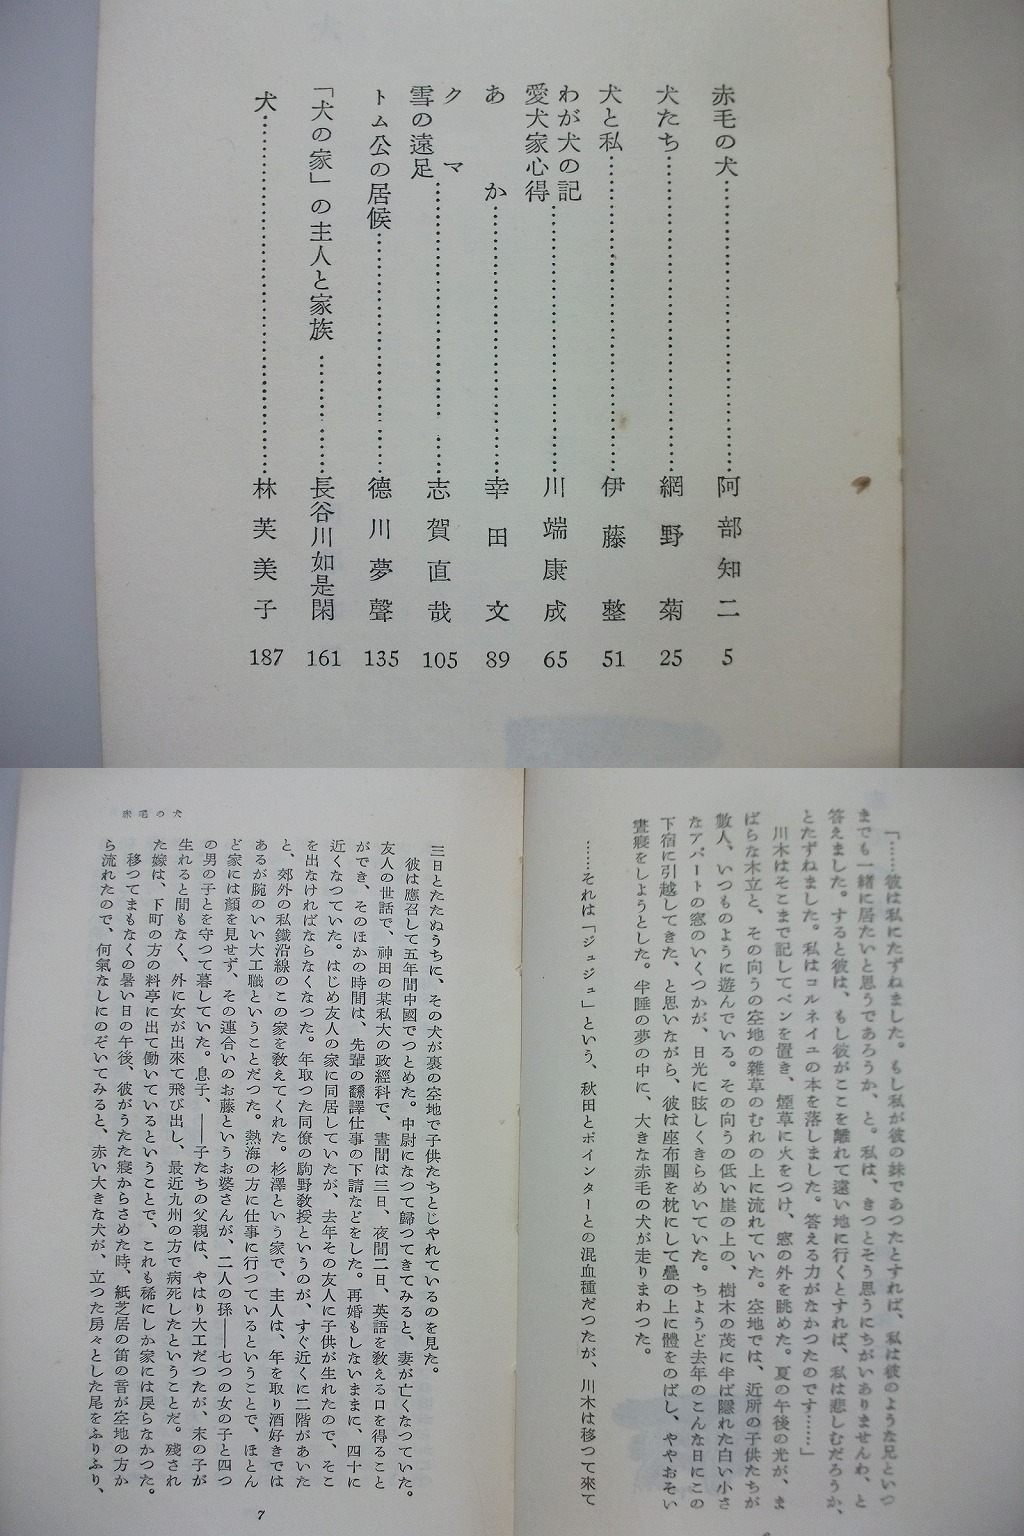 赤毛の犬……………………阿部知二 5
犬たち……………………網野菊 25
犬と私……………………伊藤整 51
わが犬の記
愛犬家心得……………………川端康成 65
あか……………………幸田文 89
クマ
雪の遠足……………………志賀直哉 105
トム公の居候……………………德川夢聲 135
「犬の家」の主人と家族……………………長谷川如是閑 161
犬……………………林芙美子 187
「……彼は私にたずねました。もし私が彼の妹であつたとすれば、私は彼のような兄といつ
までも一緒に居たいと思うであろうか、と。私は、きつとそう思うにちがいありませんわ、と
答えました。すると彼は、もし彼がここを離れて遠い地に行くとすれば、私は悲しむだろうか、
とたずねました。私はコルネイユの本を落しました。答える力がなかつたのです……」
川木はそこまで記してペンを置き、煙草に火をつけ、窓の外を眺めた。夏の午後の光が、ま
ばらな木立と、その向うの空地の雜草のむれの上に流れていた。空地では、近所の子供たちが
數人、いつものように遊んでいる。その向うの低い崖の上の、樹木の茂に半ば隱れた白い小さ
なアパートの窓のいくつかが、日光に眩しくきらめいていた。ちょうど去年のこんな日にこの
下宿に引越してきた、と思いながら、彼は座布團を枕にして疊の上に體をのばし、ややおそい
晝寢をしようとした。半睡の夢の中に、大きな赤毛の犬が走りまわつた。
……それは「ジュジュ」という、秋田とポインターとの混血種だつたが、川木は移つて來て
赤毛の犬
三日とたたぬうちに、その犬が裏の空地で子供たちとじやれているのを見た。
彼は應召して五年間中國でつとめた。中尉になつて歸つてきてみると、妻が亡くなつていた。
友人の世話で、神田の某私大の政經科で、晝間は三日、夜間二日、英語を敎える口を得ること
ができ、そのほかの時間は、先輩の飜譯仕事の下請などをした。再婚もしないままに、四十に
近くなつていた。はじめ友人の家に同居していたが、去年その友人に子供が生れたので、そこ
を出なければならなくなつた。年取つた同僚の駒野敎授というのが、すぐ近くに二階があいた
と、郊外の私鐵沿線のこの家を敎えてくれた。杉澤という家で、主人は、年を取り酒好きでは
あるが腕のいい大工職ということだつた。熱海の方に仕事に行つているということで、ほとん
ど家には顔を見せず、その連合いのお藤というお婆さんが、二人の孫――七つの女の子と四つ
の男の子とを守つて暮していた。息子、――子たちの父親は、やはり大工だつたが、末の子が
生れると間もなく、外に女が出來て飛び出し、最近九州の方で病死したということだ。殘され
た嫁は、下町の方の料亭に出て働いているということで、これも稀にしか家には戻らなかつた。
移つてまもなくの暑い日の午後、彼がうたた寢からさめた時、紙芝居の笛の音が空地の方か
ら流れたので、何氣なしにのぞいてみると、赤い大きな犬が、立つた房々とした尾をふりふり、
7